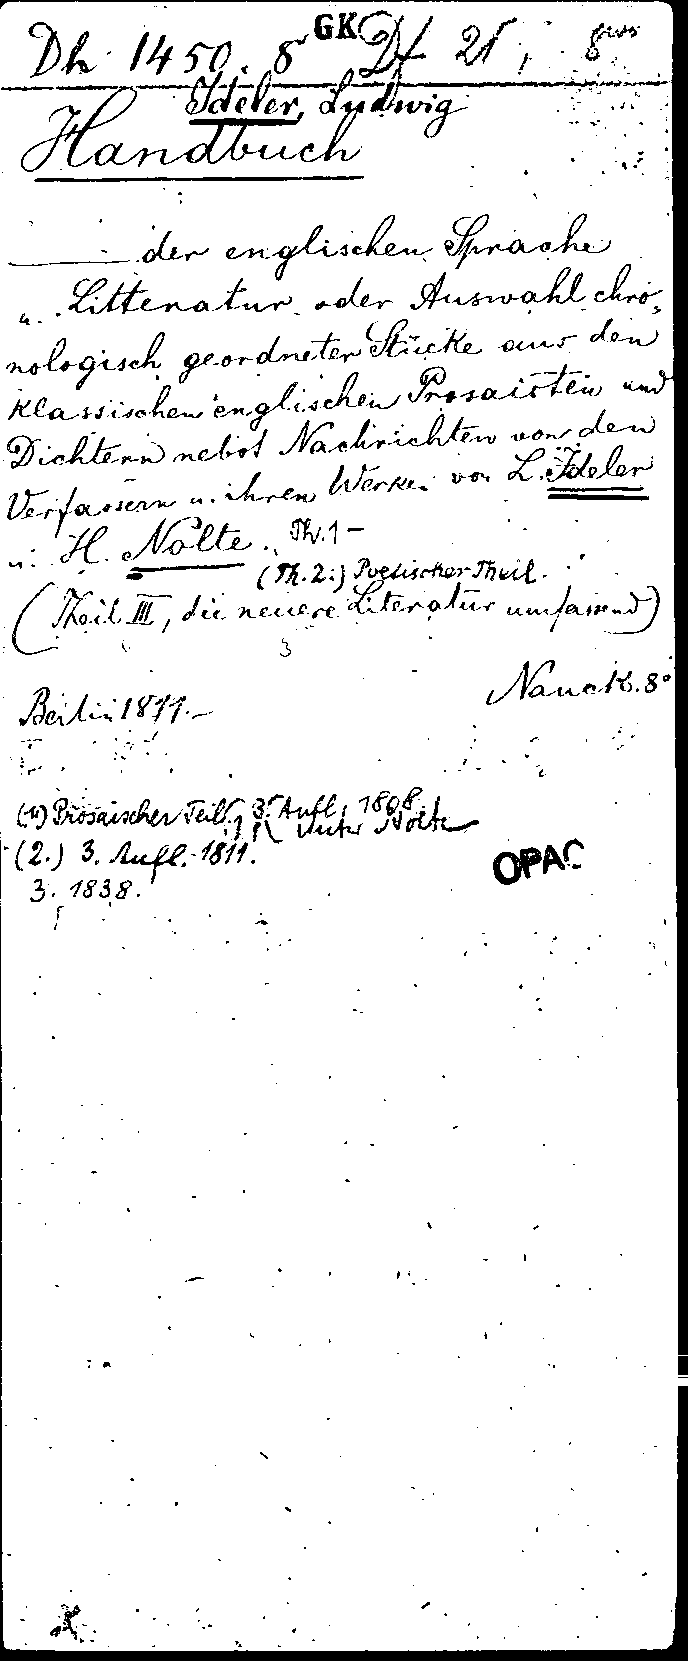 GK
Dh 1450. 8 Df 21,
Ideler, Ludwig
Handbuch
der englischen Sprache
u. Litteratur oder Auswahl chro-
nologisch geordneter Stücke aus den
klassischen englischen Prosaisten und
Dichtern nebst Nachrichten von den
Verfassern u. ihren Werken von L. Ideler
u. H. Nolte. Th. 1 –
(Th. 2:) Poetischer Theil.
(Theil III, die neuere Literatur umfassend)
3
Nauck. 8°
Berlin 1811. –
(1.) Prosaischer Teil, 3. Aufl., 1808.
unter Nolte
(2.) 3. Aufl. 1811.
3. 1838.
OPAC